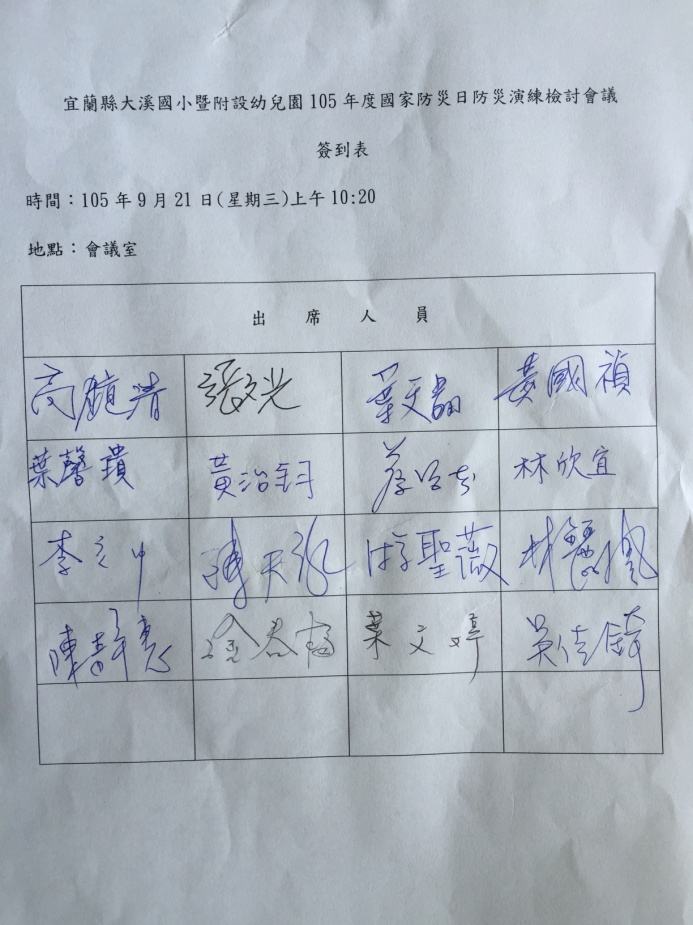 宜蘭縣大溪國小暨附設幼兒園 105 年度國家防災日防災演練檢討會議
簽到表
時間：105 年 9 月 21 日(星期三)上午 10:20
地點：會議室
出 席 人 員
張文光 黃國禎
葉馨璝 黃治鈞 林欣宜
李 聖薇 林麗
陳靜惠 葉文婷 吳佳錡